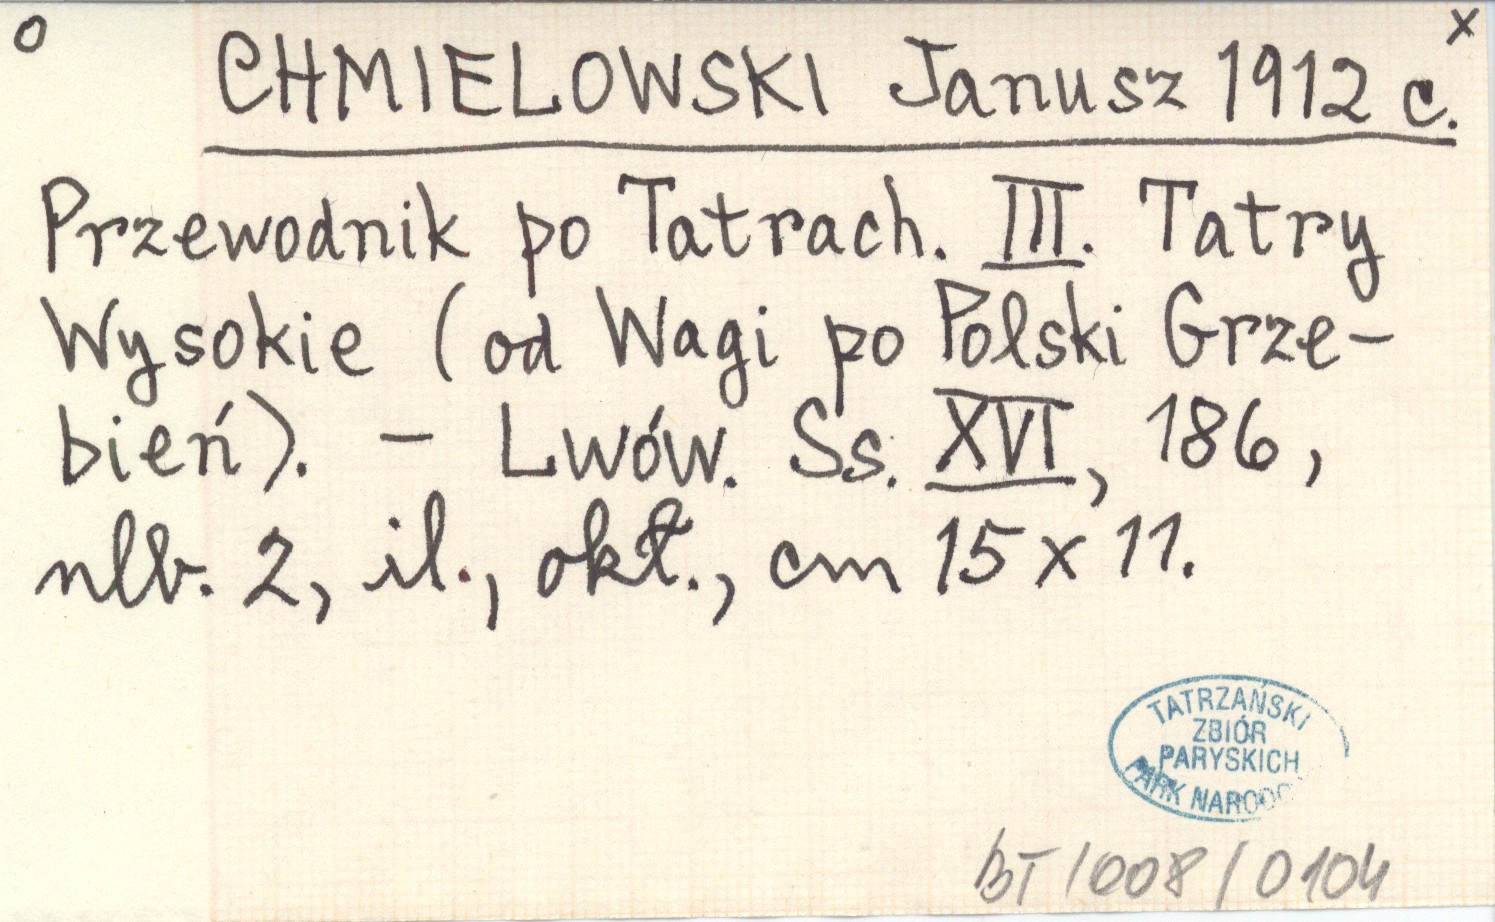 o
x
CHMIELOWSKI Janusz 1912 c.
Przewodnik po Tatrach. III. Tatry
Wysokie (od Wagi po Polski Grze-
bień). - Lwów. Ss. XVI, 186,
nlb. 2, il., okł., cm 15 x 11.
TATRZAŃSKI
ZBIÓR
PARYSKICH
PARK NARODO
BT/008/0104